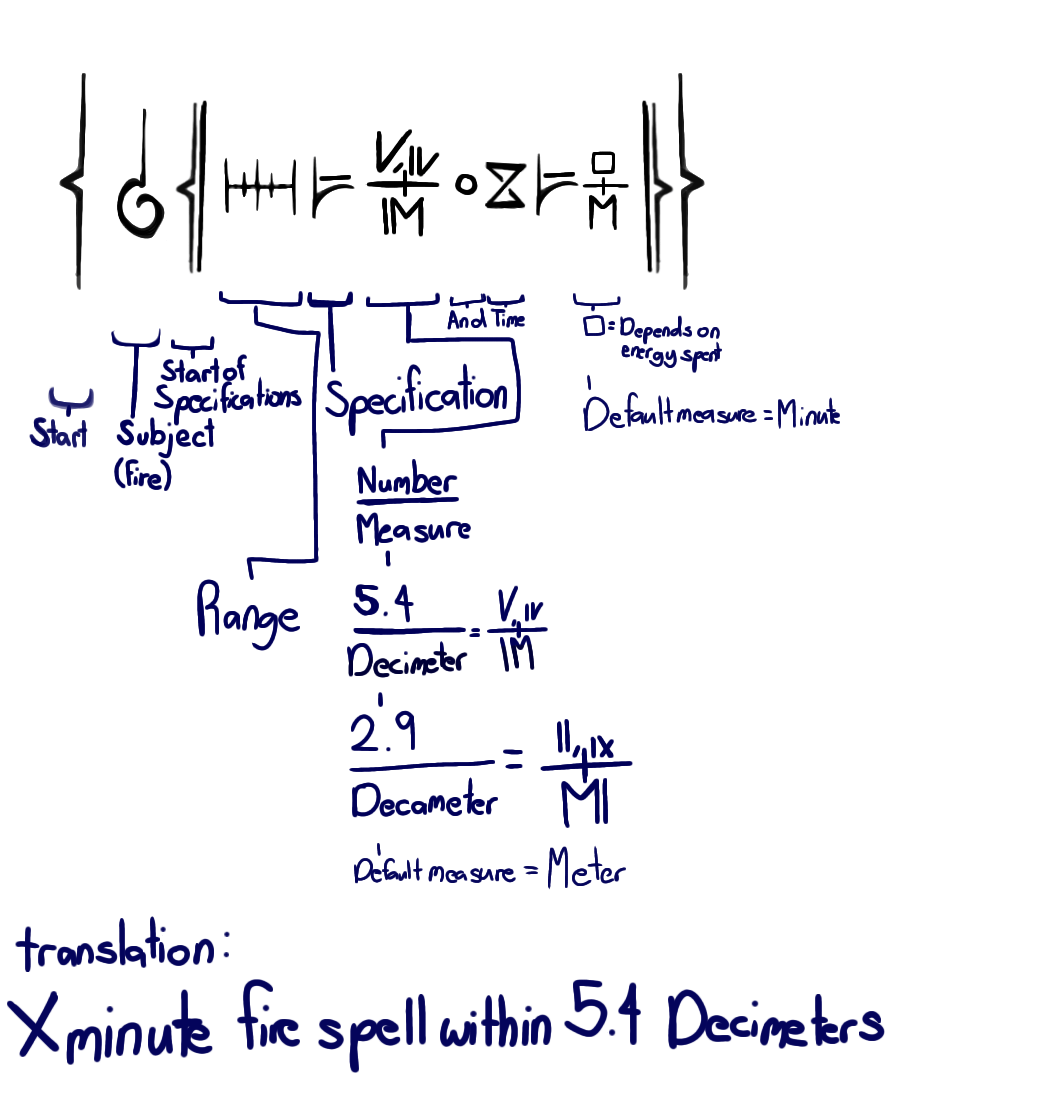 V,IV
IM
M
And Time
□ = Depends on
energy spent
Start of
Specifications
Specification
Default measure = Minute
Start
Subject
(fire)
Number
Measure
Range
5.4
Decimeter
=
V,IV
IM
2.9
Decameter
=
II,IX
MI
Default measure = Meter
translation:
X minute fire spell within 5.4 Decimeters